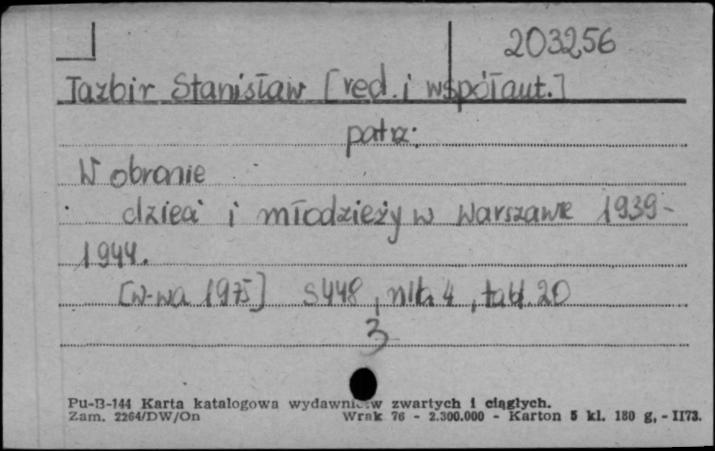 203256
Tazbir Stanisław [red. i współaut.]
patrz:
W obronie
dzieci i młodzieży w Warszawie 1939-
1944.
[W-wa 1975] s 448, nlb 4, tabl. 20
3
Pu-B-144 Karta katalogowa wydawnictw zwartych i ciągłych.
Zam. 2264/DW/On Wrak 76 - 2.300.000 - Karton 5 kl. 180 g, - II73.